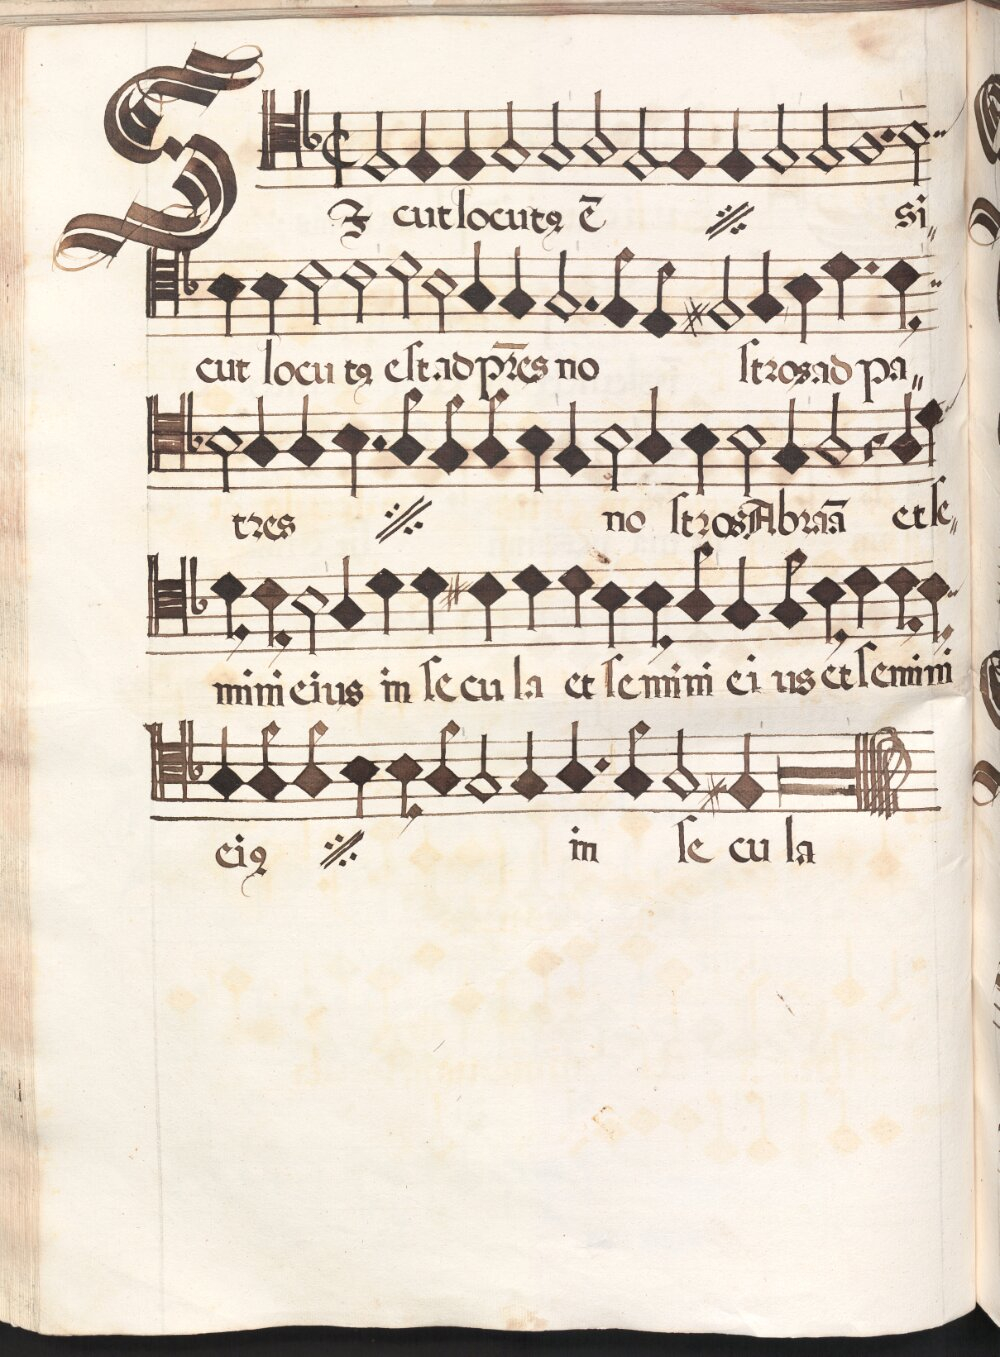 SI cut locutꝰ ē si
cut locu tꝰ est ad pr̄es no stros ad pa
tres no stros Abraā et se
mini eius in se cu la et se mini ei us et se mini
eiꝰ in se cu la